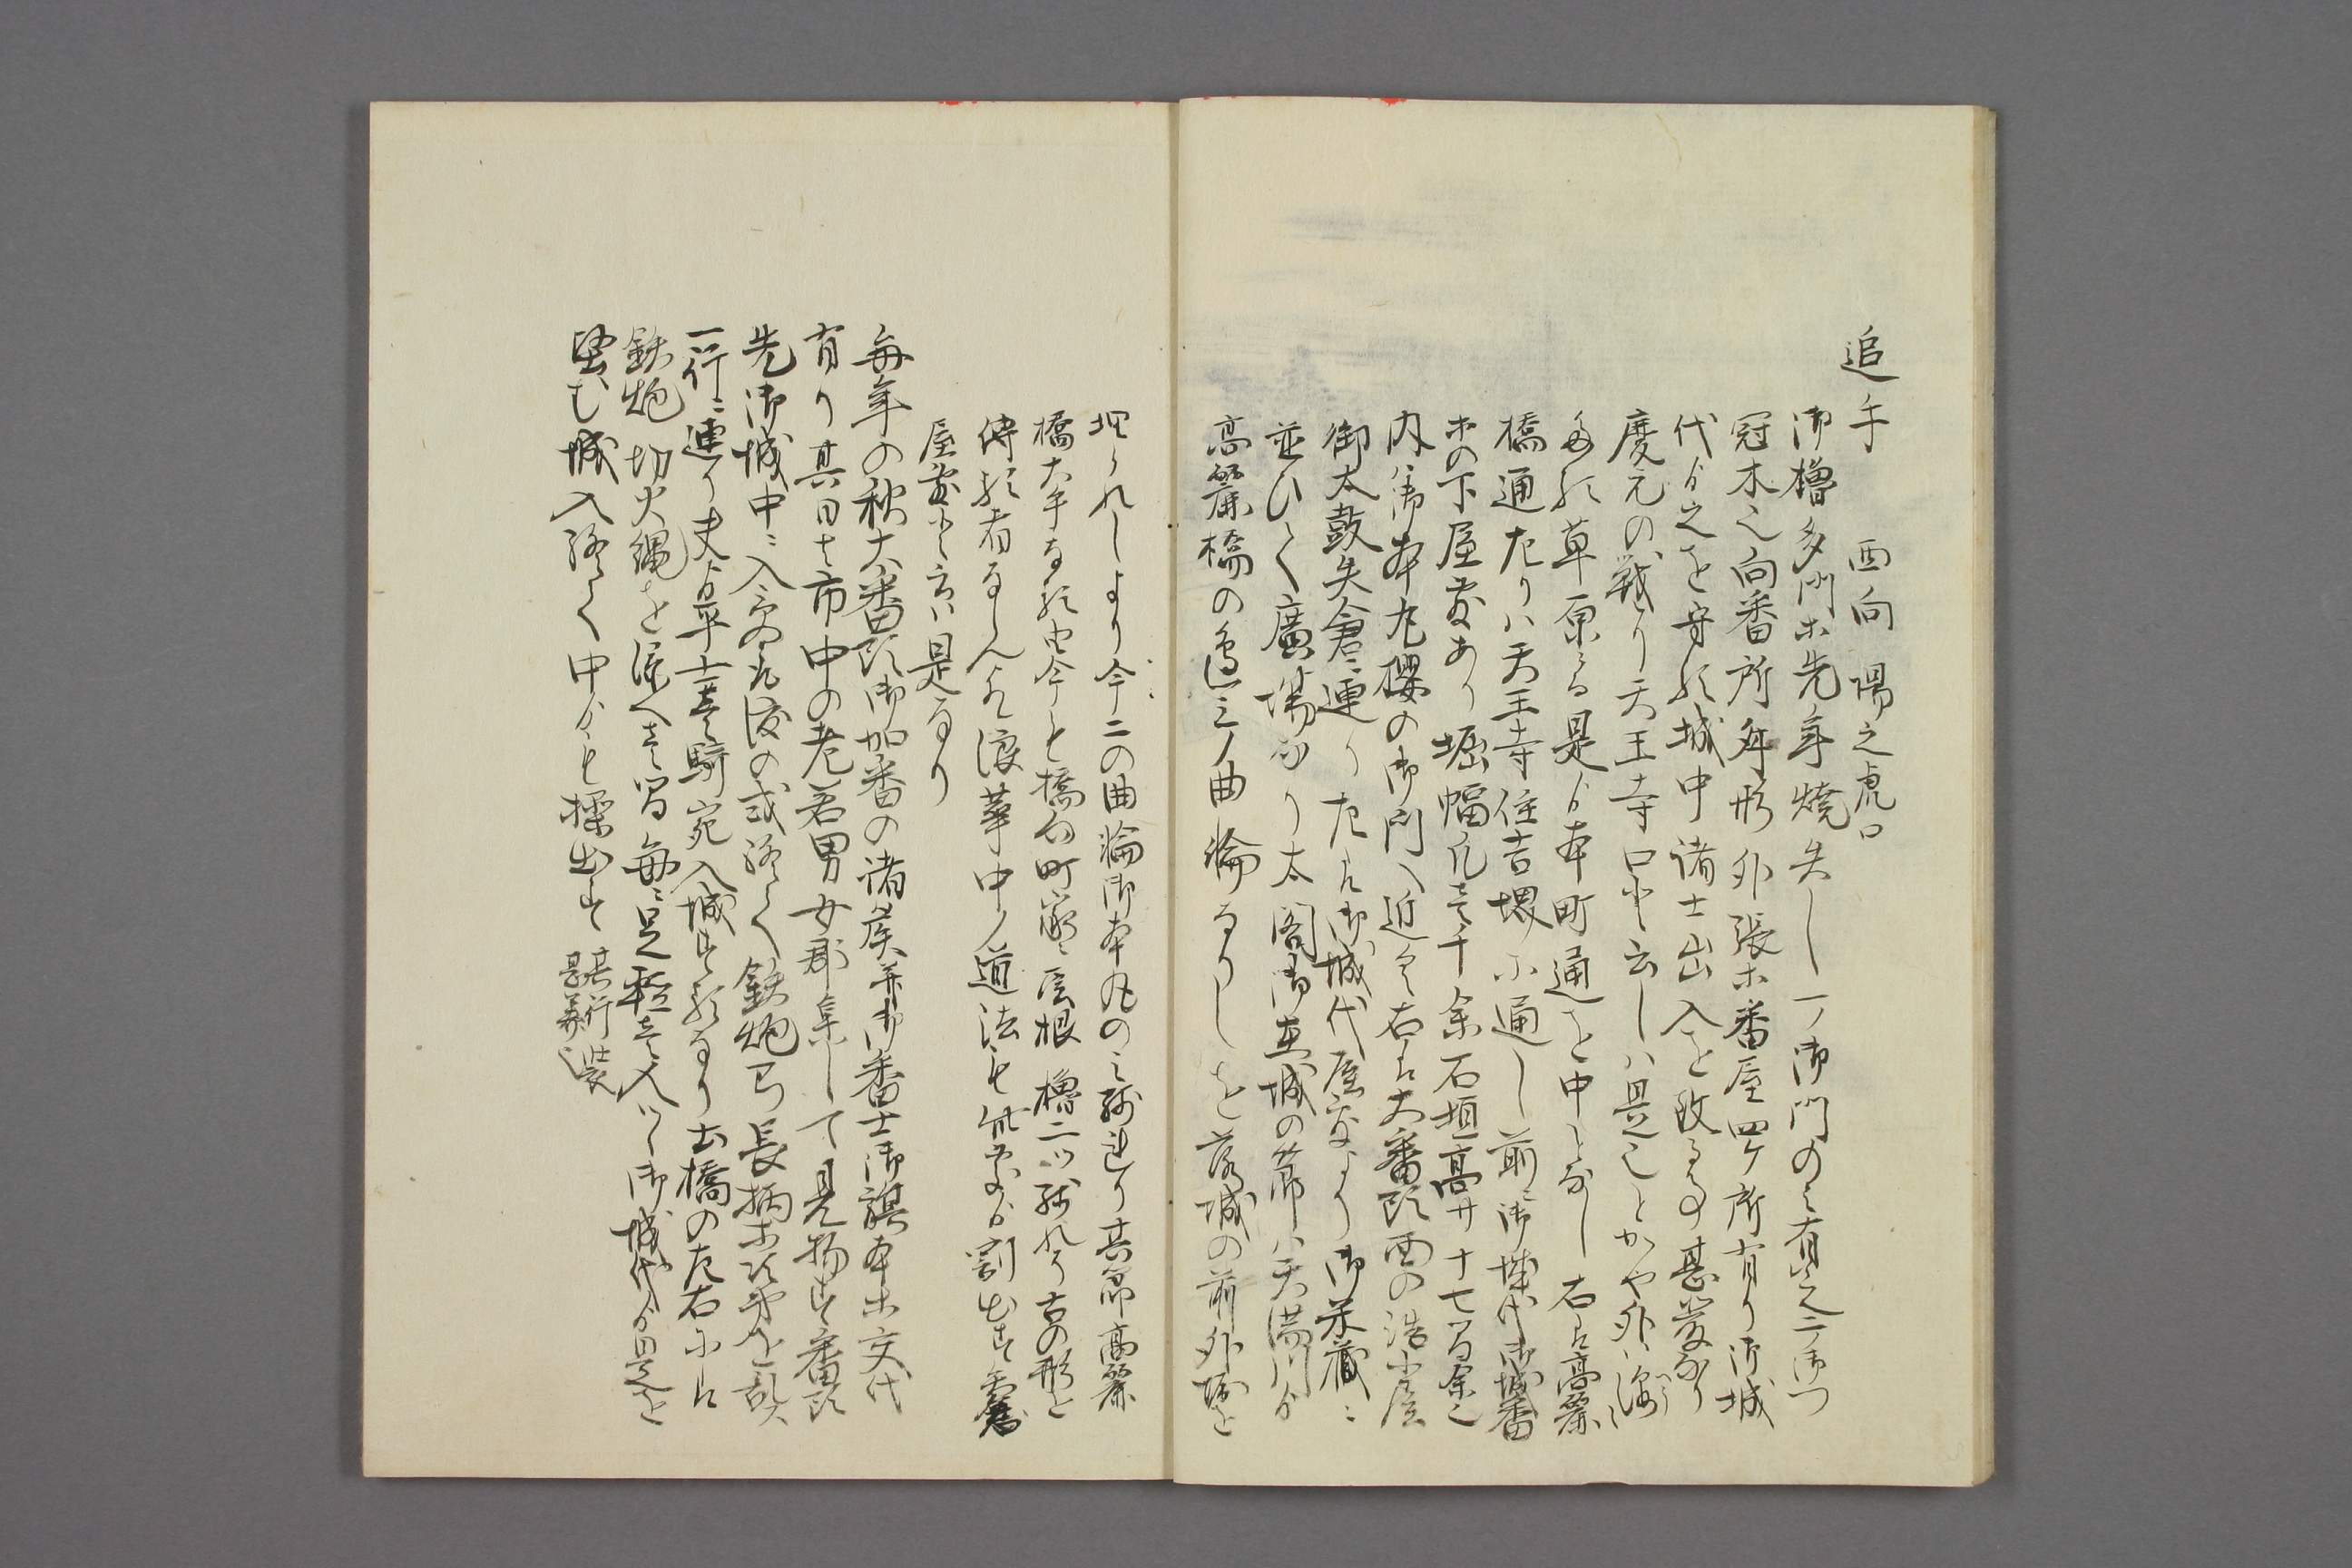 追手　西向　陽之虎口
御櫓多門ホ先年焼失し一ノ御門のミ有之二ノ御門
冠木之向番所舛形外張ホ番屋四ケ所有り御城
代ゟ之を守れ城中諸士出入を改る事甚厳なり
慶元の戦り天王寺口と云しハ是之とかや外ハ
草原る是ゟ本町通を中となし右は高麗
橋通左りハ天王寺住吉堺へ通し前ニ御城代御城番
ホの下屋敷あり堀幅凡壱千余石垣高サ十七間余之
内ハ御本丸櫻の御門へ近く右は大番頭西の諸小屋
御太鼓矢倉ニ連り左は御城代屋敷より御米蔵ニ
並ひて廣場なり太閤御在城の節ハ天満川ゟ
高麗橋の辺三ノ曲輪なりしを落城の前外堀を
埋られしより今二の曲輪御本丸のミ残れり其節高麗
橋大手なる由今も橋向町家ニ屋根櫓二ツ残れり古の形を
傳る者ならん又浪華中ノ道法も此處ゟ割出す
屋敷と云ハ是なり
毎年の秋大番頭御加番の諸矦并御番士御旗本ホ交代
有り其日は市中の老若男女群集して見物す番頭
先御城中ニ入受取渡の式終て鉄炮弓長柄ホ次第を乱さ
一行ニ連り夫ゟ平士壱騎宛入城するなり土橋の左右には
鉄炮切火縄を構へ壱間毎ニ足軽壱人ツヽ御城代ゟ是を
堅む城入終て中ゟも操出す 其行装甚美